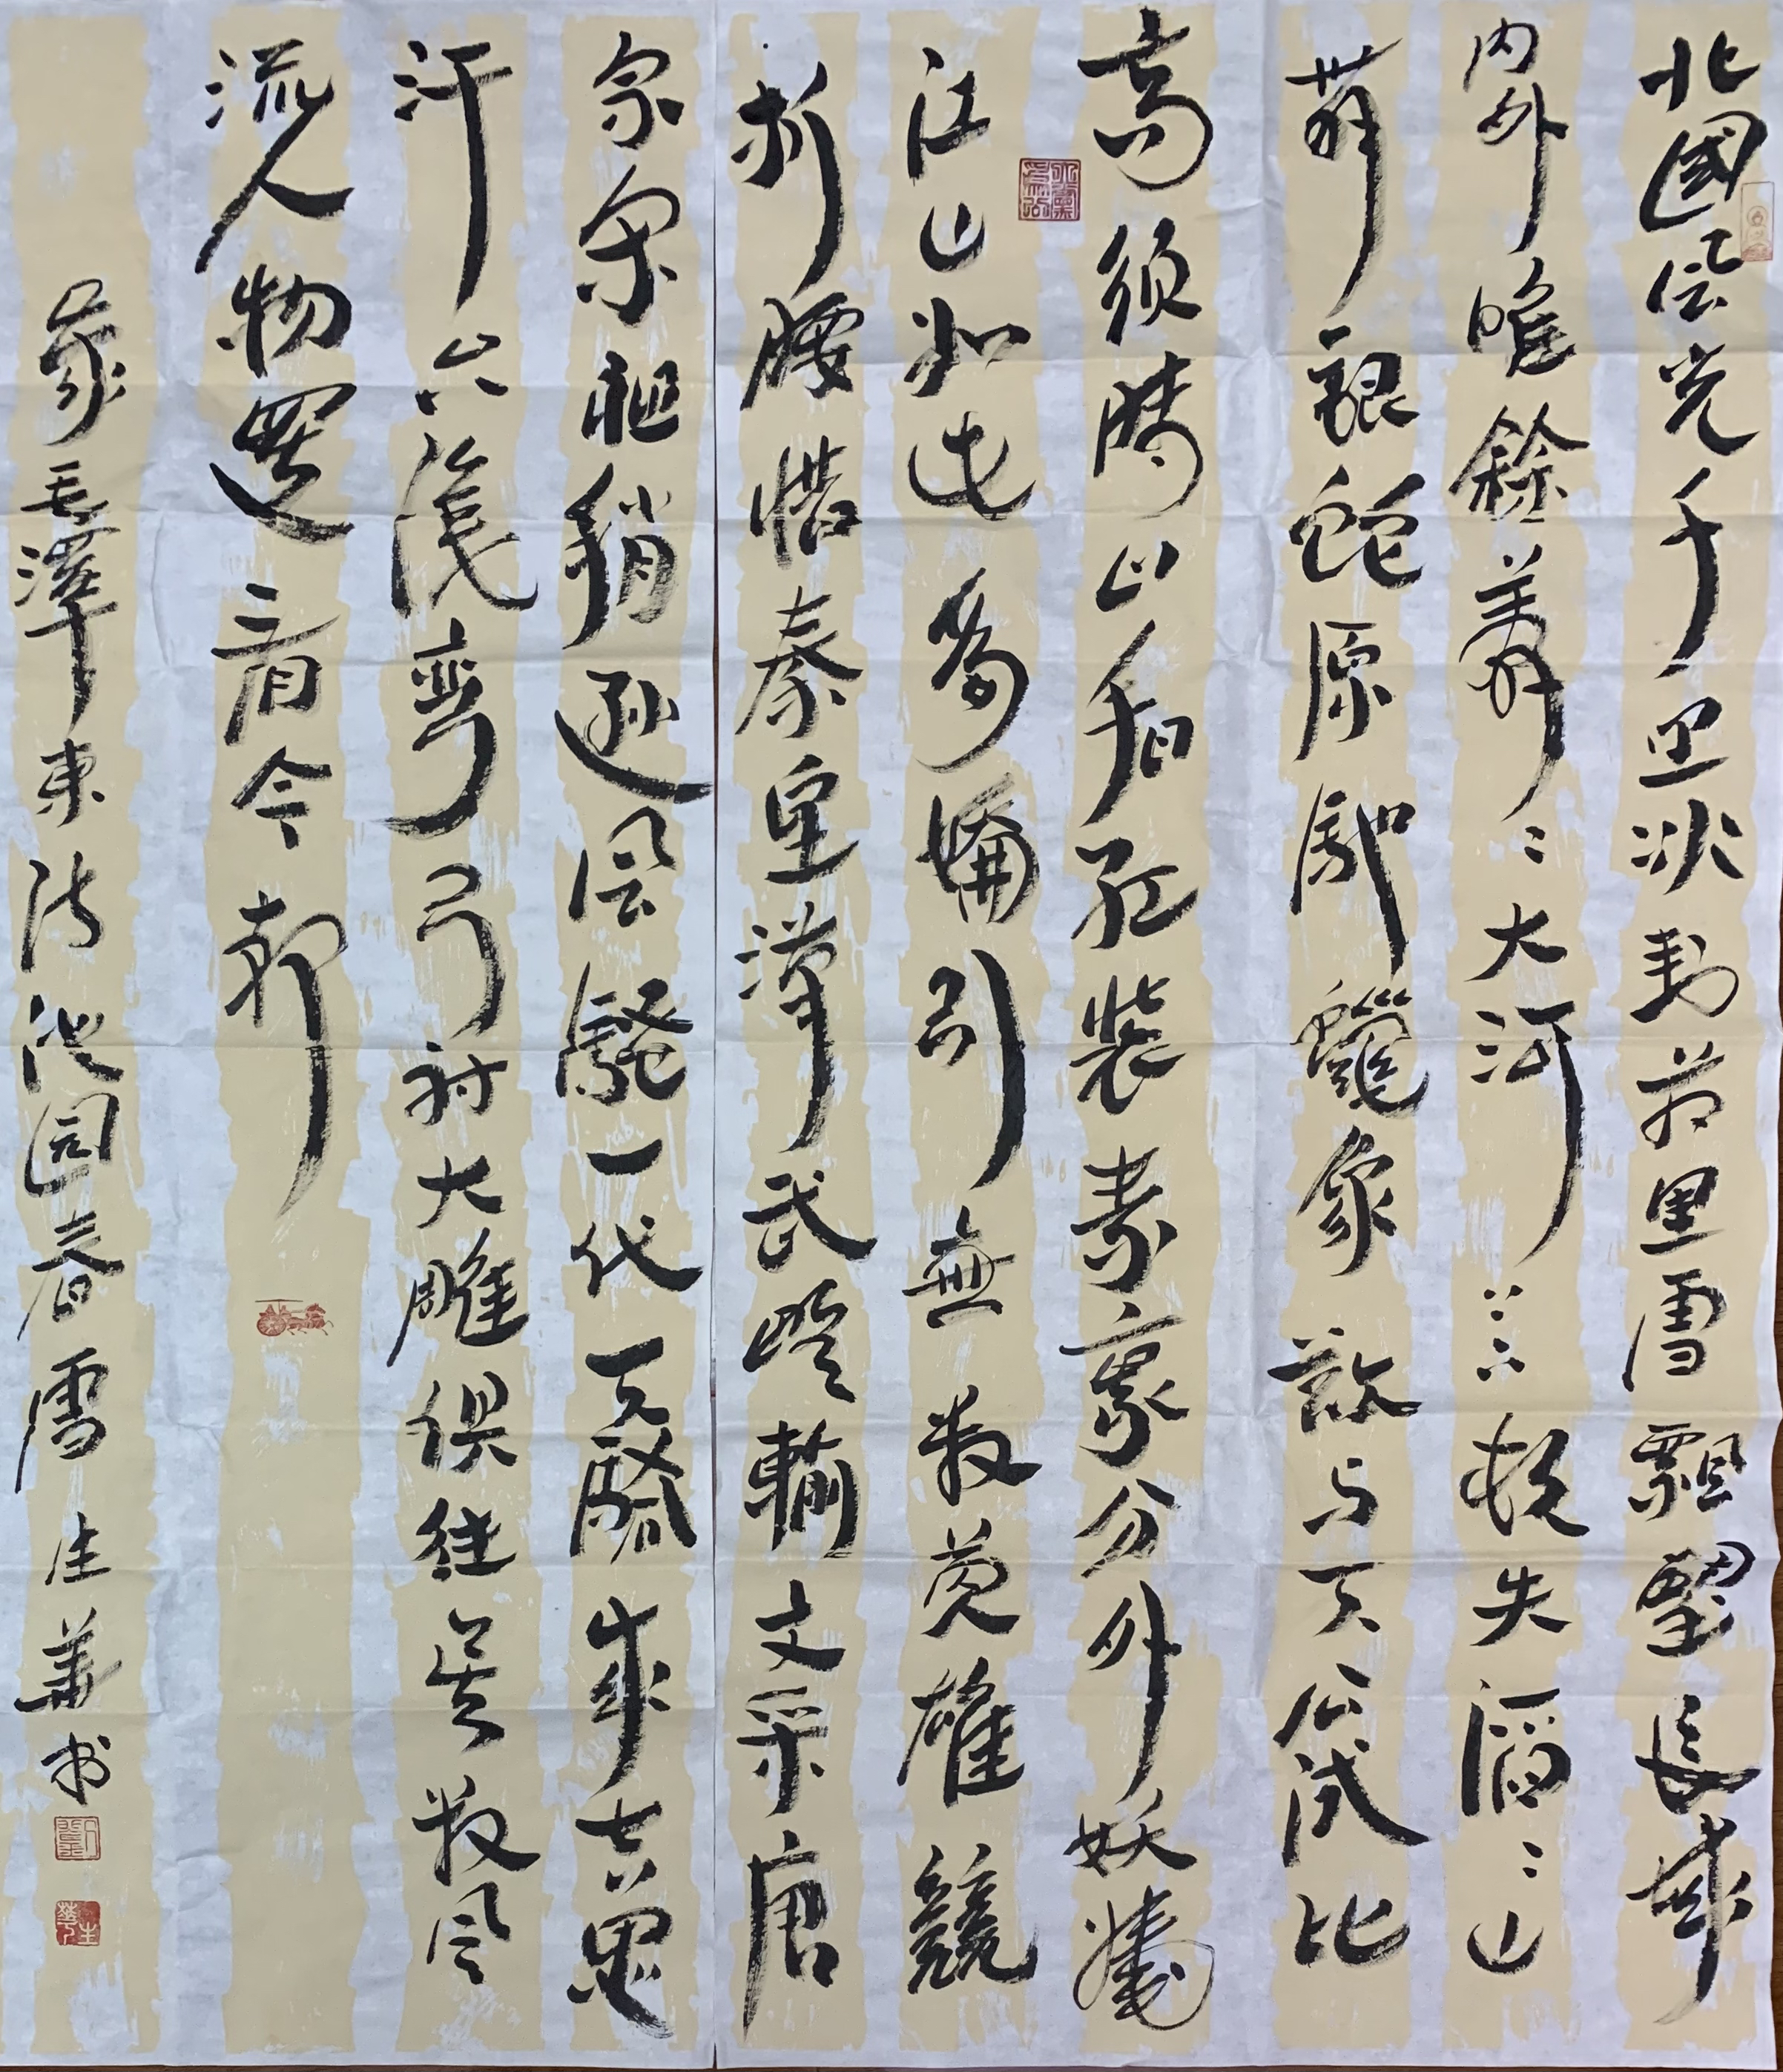 北國风光千里冰封万里雪飄望長城
内外唯餘莽〻大河上下頓失滔〻山
舞銀蛇原馳蠟象欲与天公試比
高須晴日看红裝素裹分外妖嬈
江山如此多嬌引無數英雄競
折腰惜秦皇漢武略輸文采唐
宗宋祖稍遜风騷一代天驕成吉思
汗只識彎弓射大雕俱往矣數风
流人物還看今朝
录毛澤東诗沁园春雪生華书